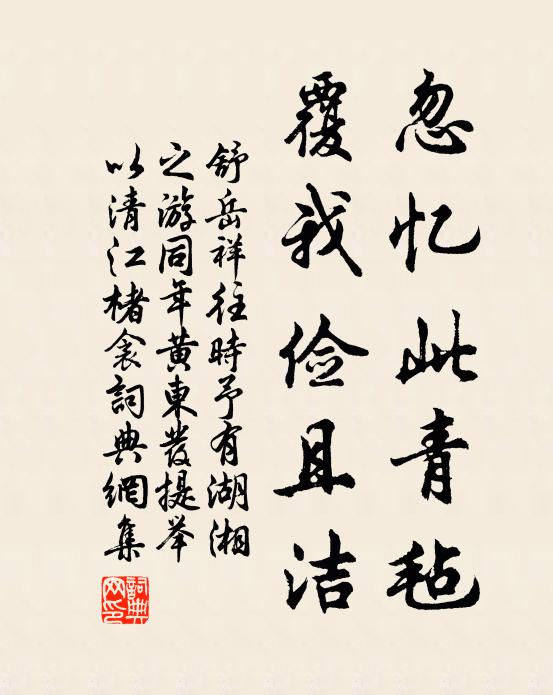 忽忆此青毡
覆我俭且洁
舒岳祥往時予有湖湘
之游同年黄東發提举
以清江楮衾詞典網集
詞典网印